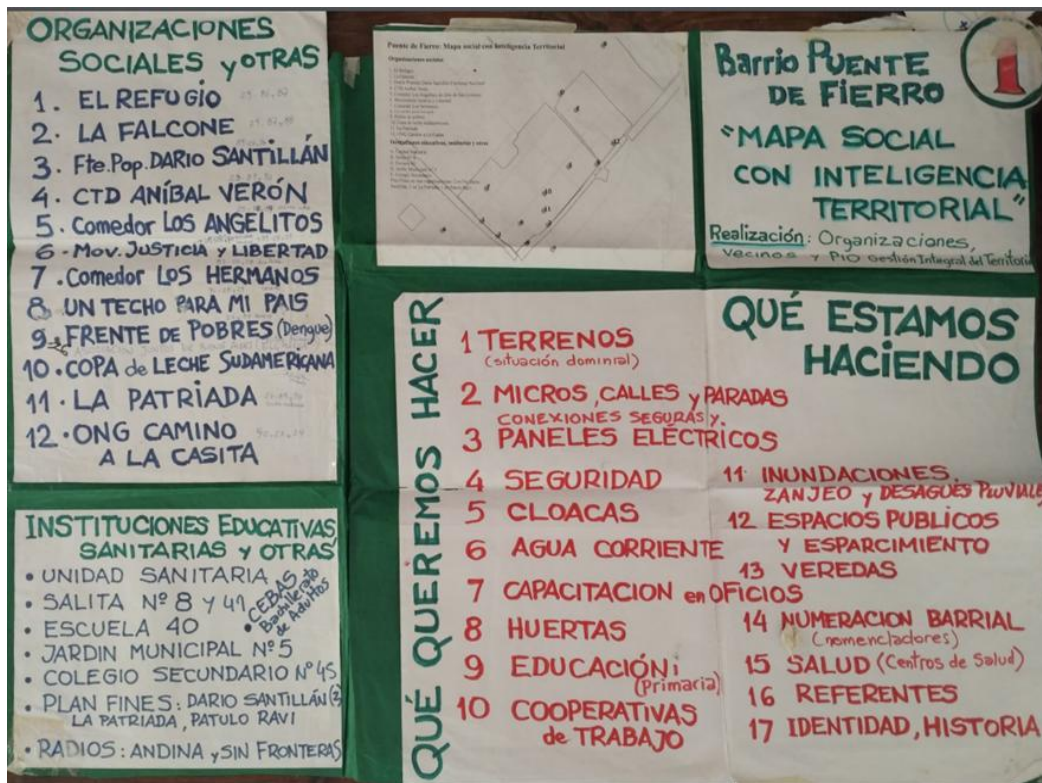 ORGANIZACIONES
SOCIALES y OTRAS
1. EL REFUGIO
2. LA FALCONE
3. Fte. Pop. DARIO SANTILLÁN
4. CTD ANÍBAL VERÓN
5. Comedor LOS ANGELITOS
6 - Mov. JUSTICIA y LIBERTAD
7. Comedor LOS HERMANOS
8. UN TECHO PARA MI PAIS
9. FRENTE DE POBRES (Dengue)
10. COPA de LECHE SUDAMERICANA
11. LA PATRIADA
12. ONG CAMINO
A LA CASITA
INSTITUCIONES EDUCATIVAS
SANITARIAS y OTRAS
• UNIDAD SANITARIA
• SALITA Nº 8 Y 41
• ESCUELA 40
• CEBAS
Bachillerato
de Adultos
• JARDIN MUNICIPAL Nº 5
• COLEGIO SECUNDARIO Nº 45
• PLAN FINES: DARIO SANTILLÁN (2)
LA PATRIADA, PATULO RAVI
• RADIOS: ANDINA y SIN FRONTERAS
Puente de Fierro: Mapa social con Inteligencia Territorial
Organizaciones sociales
Barrio PUENTE
DE FIERRO
"MAPA SOCIAL
CON INTELIGENCIA
TERRITORIAL"
Realización: Organizaciones,
Vecinos y PIO Gestión Integral del Territorio
QUÉ QUEREMOS HACER
QUÉ ESTAMOS
HACIENDO
1 TERRENOS
(situación dominial)
2 MICROS, CALLES y PARADAS
CONEXIONES SEGURAS y.
3 PANELES ELÉCTRICOS
4 SEGURIDAD
5 CLOACAS
6 AGUA CORRIENTE
7 CAPACITACION en OFICIOS
8 HUERTAS
9 EDUCACIÓN:
(Primaria)
10 COOPERATIVAS
de TRABAJO
11 INUNDACIONES,
ZANJEO y DESAGUES PLUVIALES
12 ESPACIOS PUBLICOS
Y ESPARCIMIENTO
13 VEREDAS
14 NUMERACION BARRIAL
(nomencladores)
15 SALUD (Centros de Salud)
16 REFERENTES
17 IDENTIDAD, HISTORIA